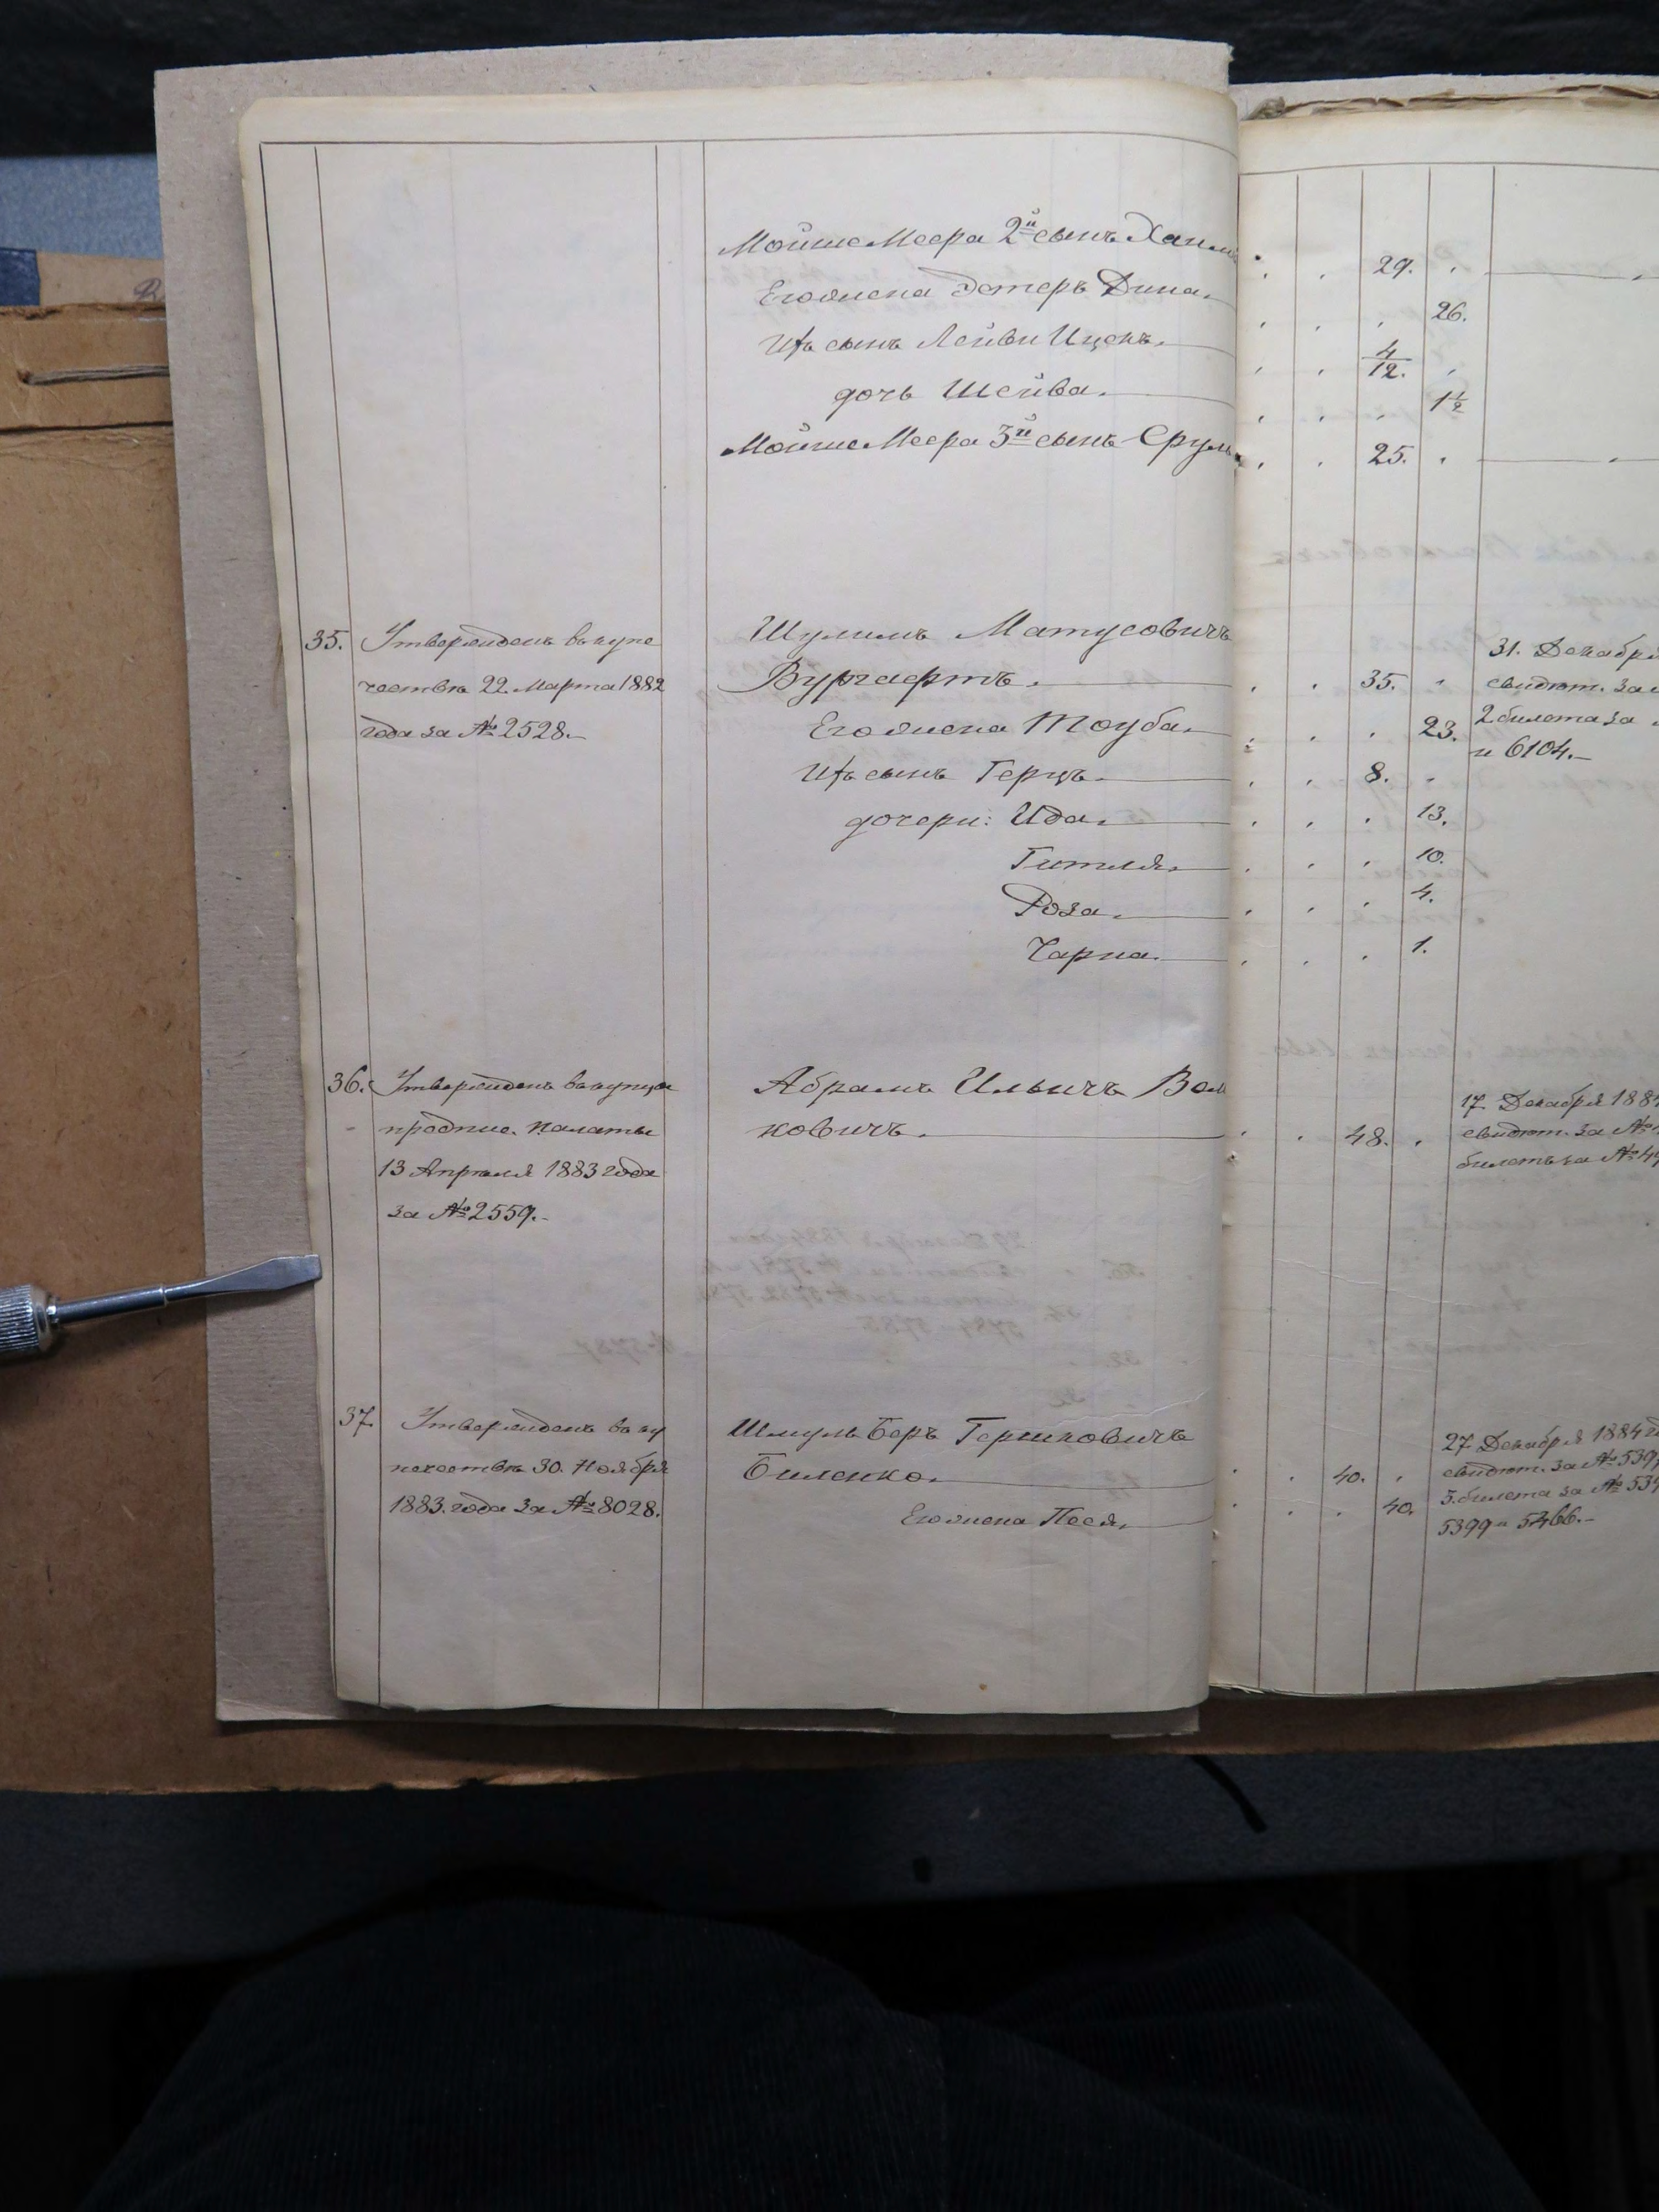 Мойше Меера 2й сынъ Хаим
29.
Его жена Эстеръ Дина.
26.
Ихъ сынъ Лейви Ицекъ.
4/12.
дочь Шейва.
1 1/2
Мойше Меера 3й сынъ Сруль
25.
35. Утвержденъ въ купе
чествѣ 22 Марта 1882
года за № 2528.
Шулимъ Матусовичъ
Вургафтъ.
35.
Его жена Тоуба.
23.
Ихъ сынъ Герцъ.
8.
дочери: Ида.
13.
Гитля.
10.
Роза.
4.
Чарна.
1.
31. Декабря
свидѣт. за
2 билета за
и 6104.
36. Утвержденъ въ купцы
предпис. Палаты
13 Апрѣля 1883 года
за № 2559.
Абрамъ Ильичъ Вол
ковичъ.
48.
17 Декабря 188
свидѣт. за №
билетъ за № 44
37. Утвержденъ въ ку
печествѣ 30. Ноября
1883. года за № 8028.
Шмуль Беръ Гершковичъ
Биленко.
40.
Его жена Песя.
40.
27 Декабря 1884
свидѣт. за № 539
3. билета за № 53
5399 и 5466.